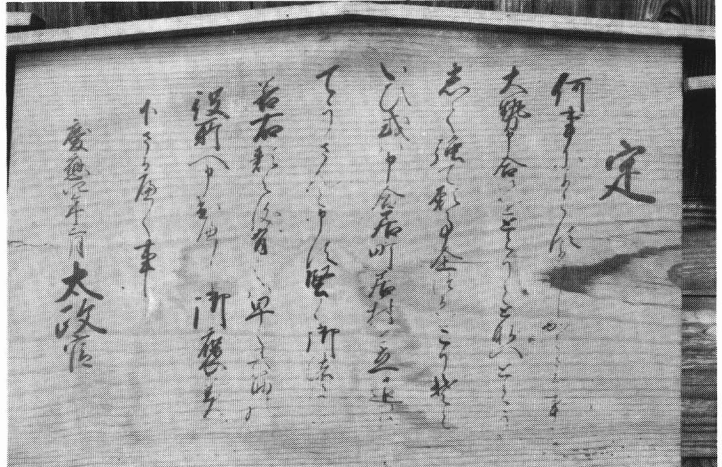 定
何事によらす よろしからさる事
大勢申合候をととうと唱へととう
志て強て願事企るをこうそと
いひ或ハ申合居町居村を立退候を
てうさんと申候堅く御法度
若右類之儀有之ハ早々其筋
役所へ申出へし御褒美
下さるへく事
慶應四年三月 太政官